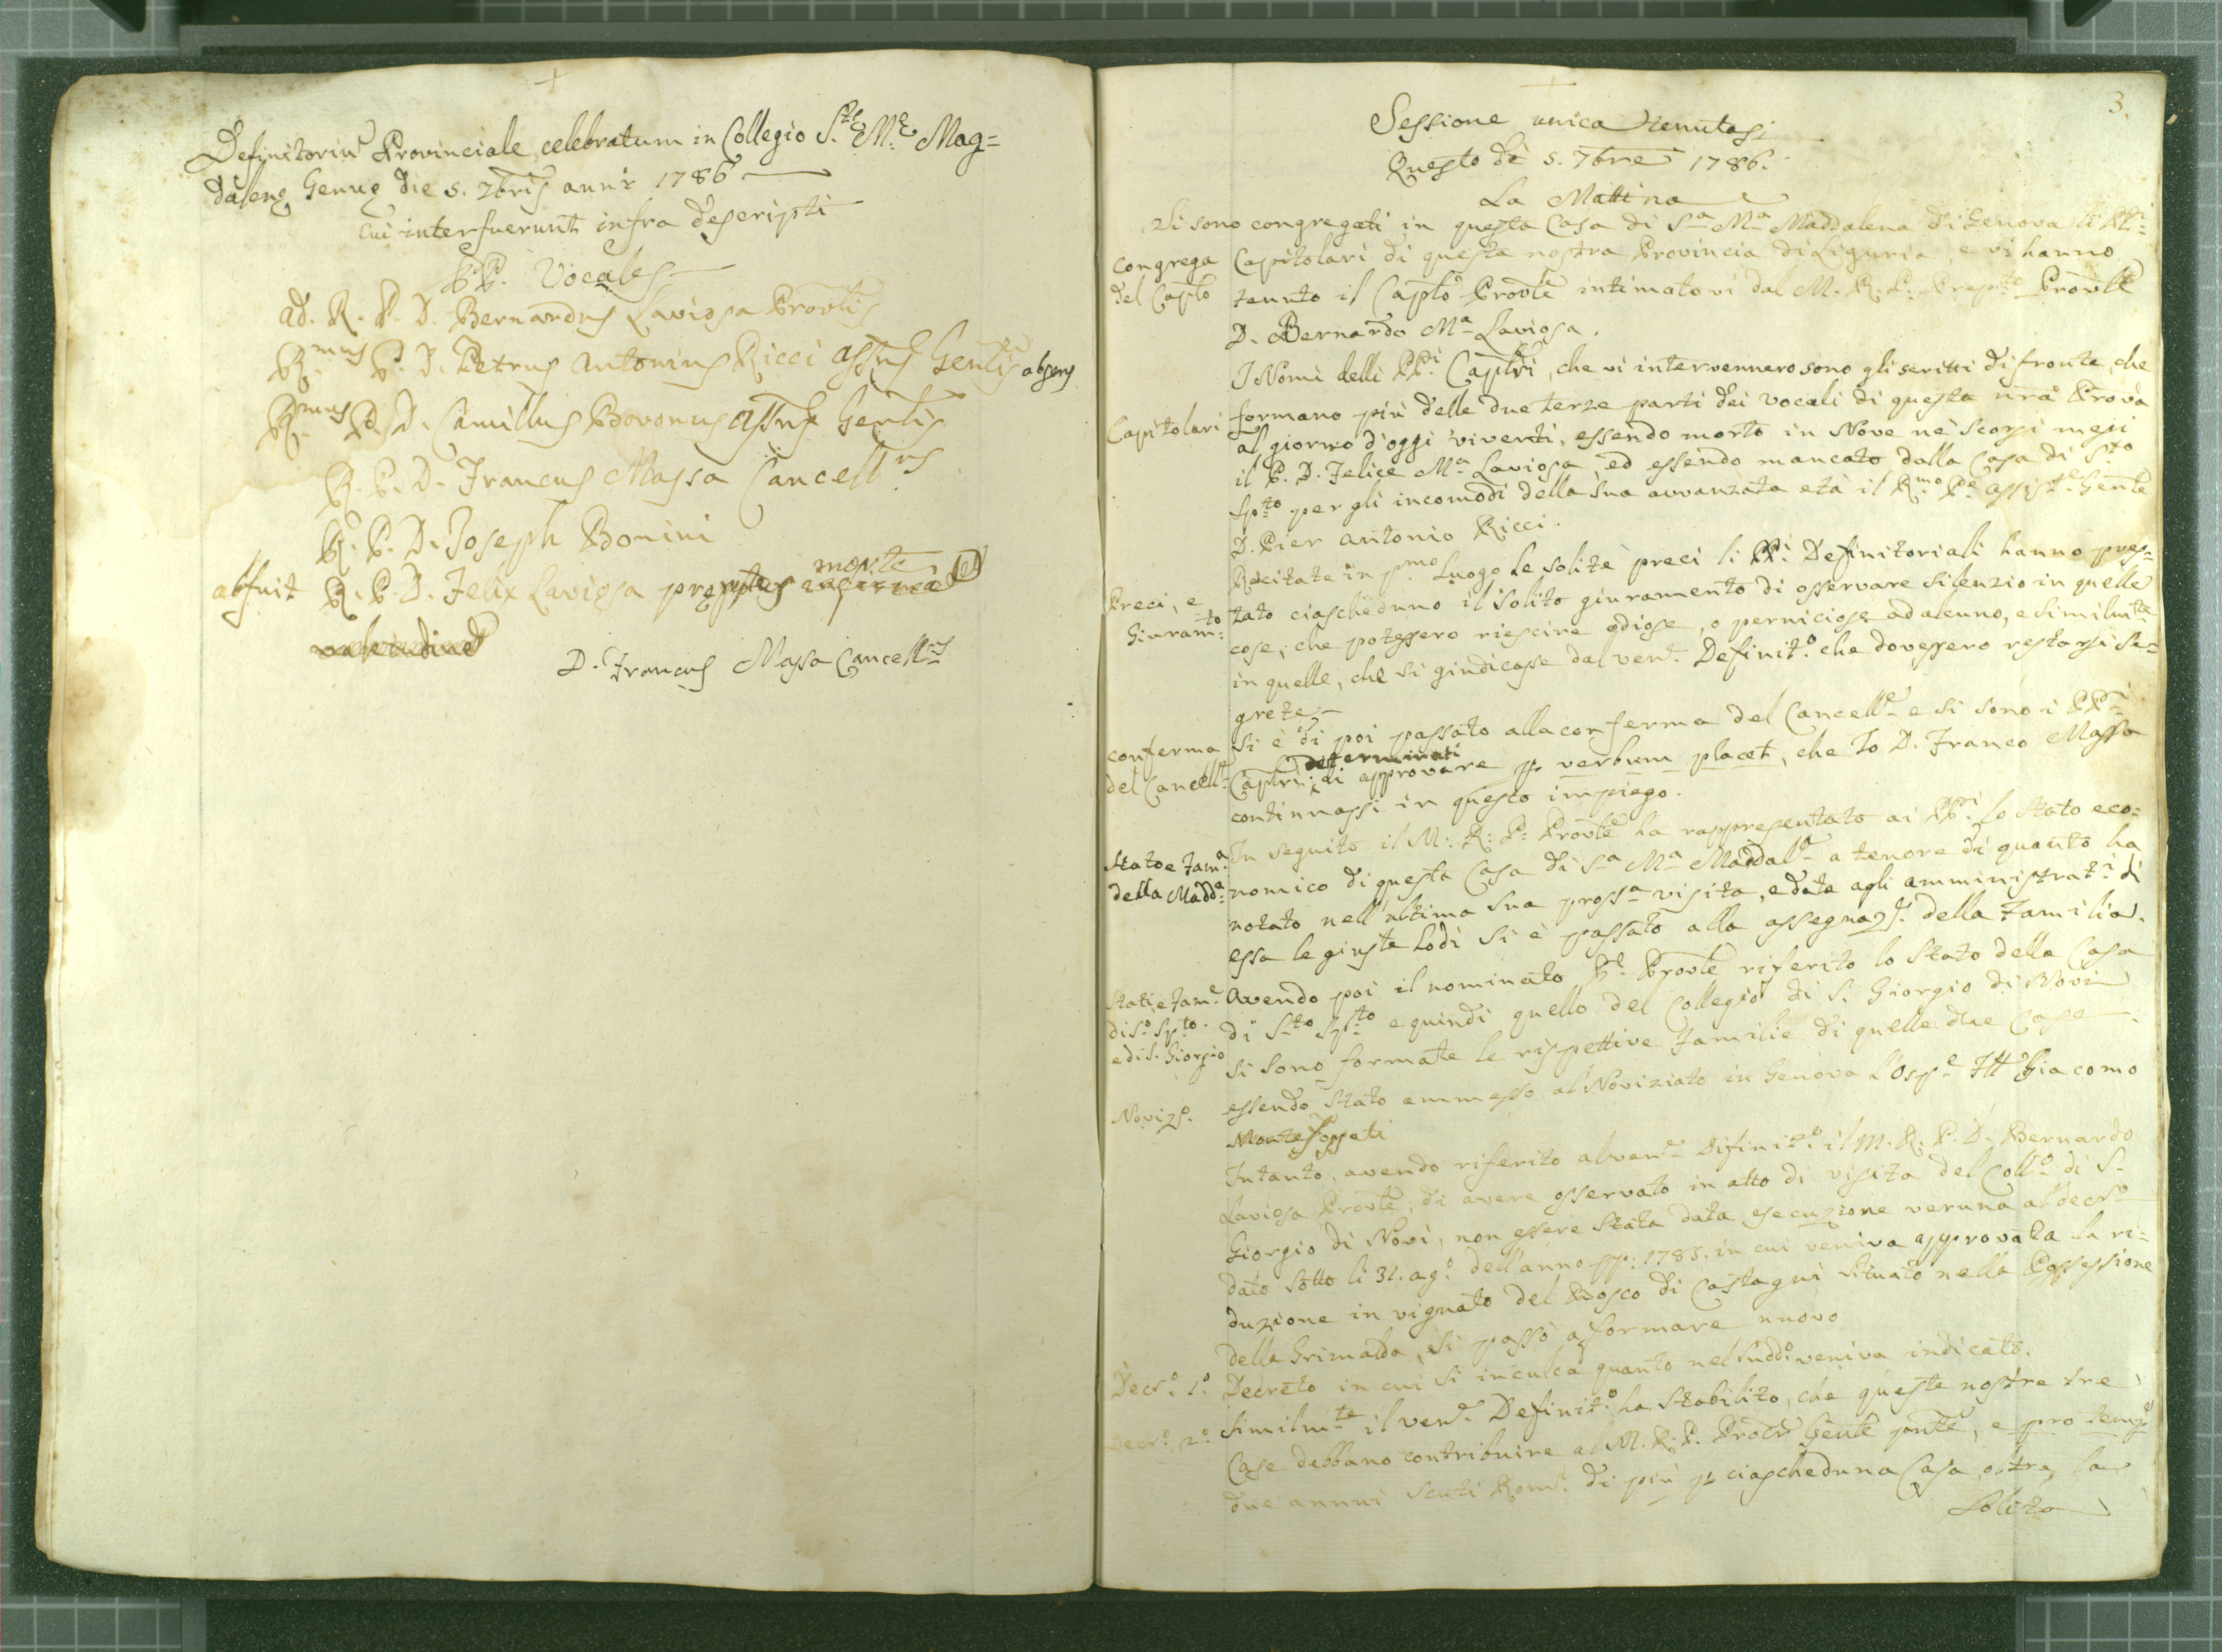 +
Definitoriu Provinciale celebratum in Collegio S.te M.e Mag=
dalene Genue die 5. 7bris anni 1786
cui interfuerunt infra descripti
PP. Vocales
Ad. R. P. D. Bernardus Laviosa Provlis
R.mus P. D. Petrus Antonius Ricci Assns Genlis absens
R.mus P. D. Camillus Bovonus Assns Genlis
R. P. D. Francus Massa Cancell.us
R. P. D. Joseph Bonini
abfuit R. P. D. Felix Laviosa propter morte
valetudine
D. Francus Massa Cancell.us
+
3.
Sessione unica tenutasi
Questo dì 5. 7bre 1786.
La Mattina
Si sono congregati in questa Casa di S.a M.a Maddalena di Genova li PP.i
Congrega
del Caplo
Capitolari di questa nostra Provincia di Liguria e vi hanno
tenuto il Caplo Provle intimatovi dal M. R. P. Prep.to Provle
D. Bernardo M.a Laviosa.
I Nomi delli PP.i Caplri, che vi intervennero sono gli scritti di fronte, che
Capitolari
formano più delle due terze parti dei vocali di questa nra Prova
al giorno d'oggi viventi, essendo morto in Nove nè scorsi mesi
il P. D. Felice M.a Laviosa, ed essendo mancato dalla Casa di S.to
Sp.to per gli incomodi della sua avvanzata età il R.mo P.e Assist.e Genle
D. Pier Antonio Ricci.
Recitate in p.mo Luogo le solite preci li PP.i Definitoriali hanno pres=
Preci, e
Giuram.to
tato ciascheduno il solito giuramento di osservare silenzio in quelle
cose, che potessero riescire odiose, o perniciose ad alcuno, e similm.te
in quelle, che si giudicasse dal ven.e Definit.o che dovessero restarsi se=
grete
Conferma
del Cancell.e
Si è di poi passato alla conferma del Cancell.e e si sono i PP.i
Caplri determinati di approvare p verbum placet, che Io D. Franco Massa
continuassi in questo impiego.
Stato e Fam.a
della Madd.a
In seguito il M. R. P. Provle ha rappresentato ai PP.i lo Stato eco=
nomico di questa Casa di S.a M.a Maddal.a a tenore di quanto ha
notato nell'ultima sua pross.a visita, e date agli amministrat.i di
essa le giuste Lodi si è passato alla assegnaz.e della Familia.
Stati, e Fam.e
di S.o Sp.to
e di S. Giorgio
Avendo poi il nominato P.e Provle riferito lo Stato della Casa
di S.to Sp.to e quindi quello del Collegio di S. Giorgio di Novi
si sono formate le rispettive Familie di quelle due Case.
Noviz.o
essendo stato ammesso al Noviziato in Genova l'Osp.e Giacomo
Intanto, avendo riferito al ven.e Difinit.o il M. R. P. D. Bernardo
Laviosa Provle, di avere osservato in atto di visita del Coll.o di S.
Giorgio di Novi, non essere stata data esecuzione veruna al decr.o
dato sotto li 31. ag.o dell'anno pp: 1785. in cui veniva approvata la ri=
duzione in vignato del Bosco di Castagni situato nella Possessione
della Grimalda, si passò a formare nuovo
Decr.o 1.o
Decreto in cui si inculca quanto nel sudd.o veniva indicato.
Decr.o 2.o
Similm.te il ven.e Definit.o ha stabilito, che queste nostre tre
Case debbano contribuire al M. R. P. Procr Genle pnte, e pro temp.e
due annui scuti Rom.i di più p ciascheduna Casa oltre la
solita